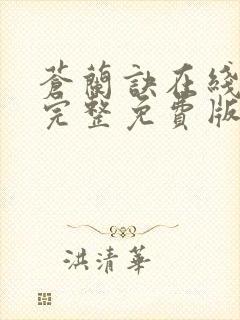 蒼蘭訣在綫
完整免費版
洪清華